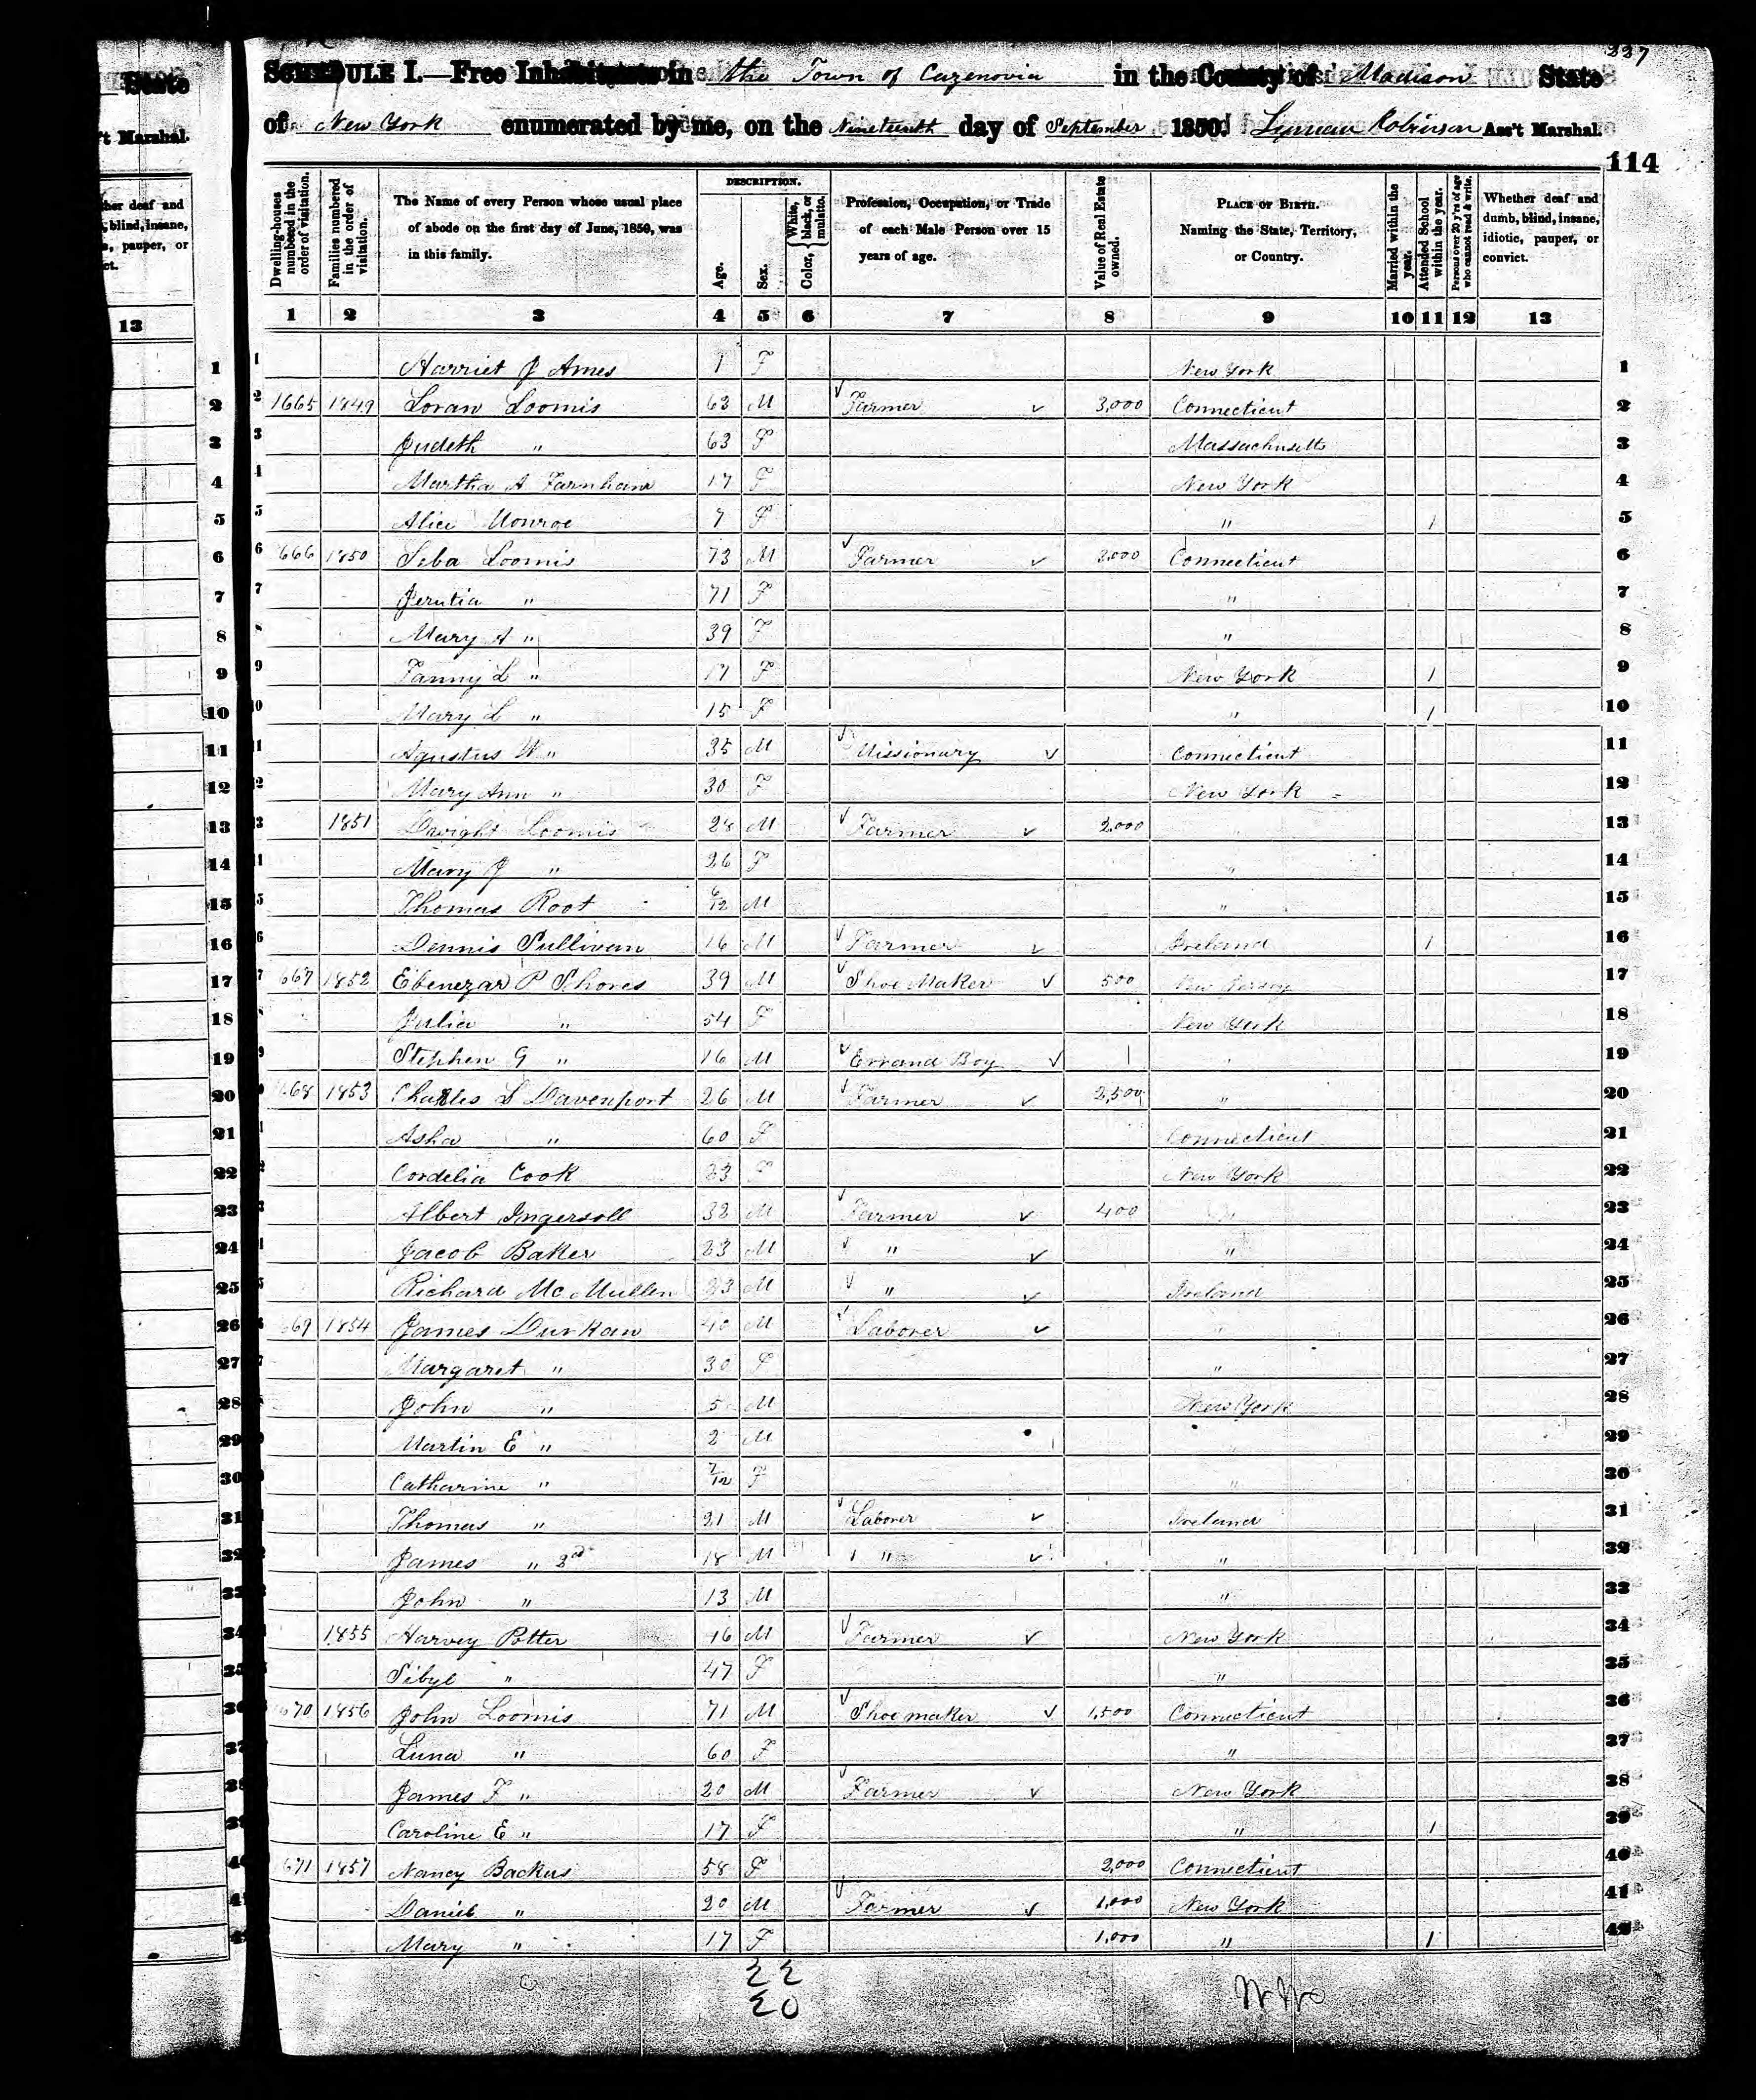 227
SCHEDULE I.—Free Inhabitants in the Town of Cazenovia in the County of Madison State
of New York enumerated by me, on the Nineteenth day of September 1850. Lyman Robinson Ass't Marshal.
114
State
't Marshal.
her deaf and
, blind, insane,
, pauper, or
ct.
13
Dwelling-houses numbered in the order of visitation.
Families numbered in the order of visitation.
The Name of every Person whose usual place of abode on the first day of June, 1850, was in this family.
DESCRIPTION.
Age.
Sex.
Color, { White, black, or mulatto.
Profession, Occupation, or Trade of each Male Person over 15 years of age.
Value of Real Estate owned.
PLACE OF BIRTH. Naming the State, Territory, or Country.
Married within the year.
Attended School within the year.
Persons over 20 y'rs of age who cannot read & write.
Whether deaf and dumb, blind, insane, idiotic, pauper, or convict.
1 2 3 4 5 6 7 8 9 10 11 12 13
1 Harriet J Ames 1 F New York 1
2 1665 1849 Loran Loomis 63 M Farmer 3,000 Connecticut 2
3 Judeth " 63 F Massachusetts 3
4 Martha A Farnham 17 F New York 4
5 Alice Monroe 7 F " 1 5
6 666 1850 Seba Loomis 73 M Farmer Connecticut 6
7 Jerutia " 71 F " 7
8 Mary A " 39 F " 8
9 Fanny L " 17 F New York 1 9
10 Mary L " 15 F " 1 10
11 Agustus W " 35 M Missionary Connecticut 11
12 Mary Ann " 30 F New York 12
13 1851 Dwight Loomis 28 M Farmer 2,000 " 13
14 Mary J " 26 F " 14
15 Thomas Root 6/12 M " 15
16 Dennis Sullivan 16 M Farmer Ireland 1 16
17 667 1852 Ebenezar P Shores 39 M Shoe Maker 500 New Jersey 17
18 Julia " 54 F New York 18
19 Stephen G " 16 M Errand Boy " 19
20 668 1853 Charles S Davenport 26 M Farmer 2,500 " 20
21 Asha " 60 F Connecticut 21
22 Cordelia Cook 23 F New York 22
23 Albert Ingersoll 32 M Farmer 400 " 23
24 Jacob Baker 23 M " " 24
25 Richard McMullen 23 M " Ireland 25
26 669 1854 James Durkan 40 M Laborer " 26
27 Margaret " 30 F " 27
28 John " 5 M New York 28
29 Martin E " 2 M " 29
30 Catharine " 7/12 F " 30
31 Thomas " 21 M Laborer Ireland 31
32 James " 2nd 18 M " " 32
33 John " 13 M " 33
34 1855 Harvey Potter M Farmer New York 34
35 Sibyl " 47 F " 35
36 670 1856 John Loomis 71 M Shoe maker 1,500 Connecticut 36
37 Luna " 60 F " 37
38 James F " 20 M Farmer New York 38
39 Caroline E " 17 F " 1 39
40 671 1857 Nancy Backus 58 F 2,000 Connecticut 40
41 Daniel " 20 M Farmer 1,000 New York 41
42 Mary " 17 F 1,000 " 1 42
22
20